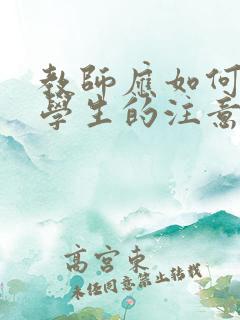 教師應如何
學生的注意
高宮東
未經同意禁止轉載